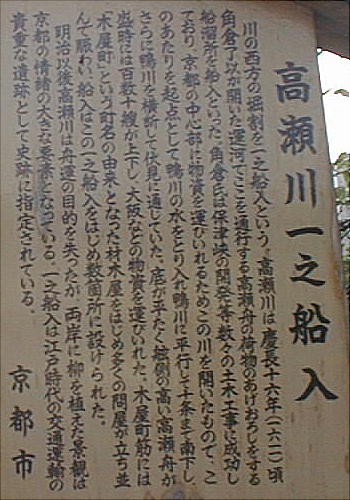 高瀬川一之船入
川の西方の堀割を一之船入という。高瀬川は、慶長十六年(一六一一)頃
角倉了以が開いた運河でここを通行する高瀬舟の荷物のあげおろしをする
船溜所を船入といった。角倉氏は保津峡の開発等数々の土木工事に成功し
ており、京都の中心部に物資を運びいれるためこの川を開いたもので、こ
のあたりを起点として鴨川の水をとり入れ鴨川に平行して十条まで南下し、
さらに鴨川を横断して伏見に通じていた。底が平たく舷側の高い高瀬舟が
盛時には百数十艘が上下し、大阪などの物資を運びいれた。木屋町筋には
「木屋町」という町名の由来となった材木屋をはじめ多くの問屋が立ち並
んで賑わい、船入はこの一之船入をはじめ数箇所に設けられた。
明治以後高瀬川は舟運の目的を失ったが、両岸に柳を植えた景観は
京都の情緒の大きな要素となっている。一之船入は江戸時代の交通運輸の
貴重な遺跡として史跡に指定されている。
京都市